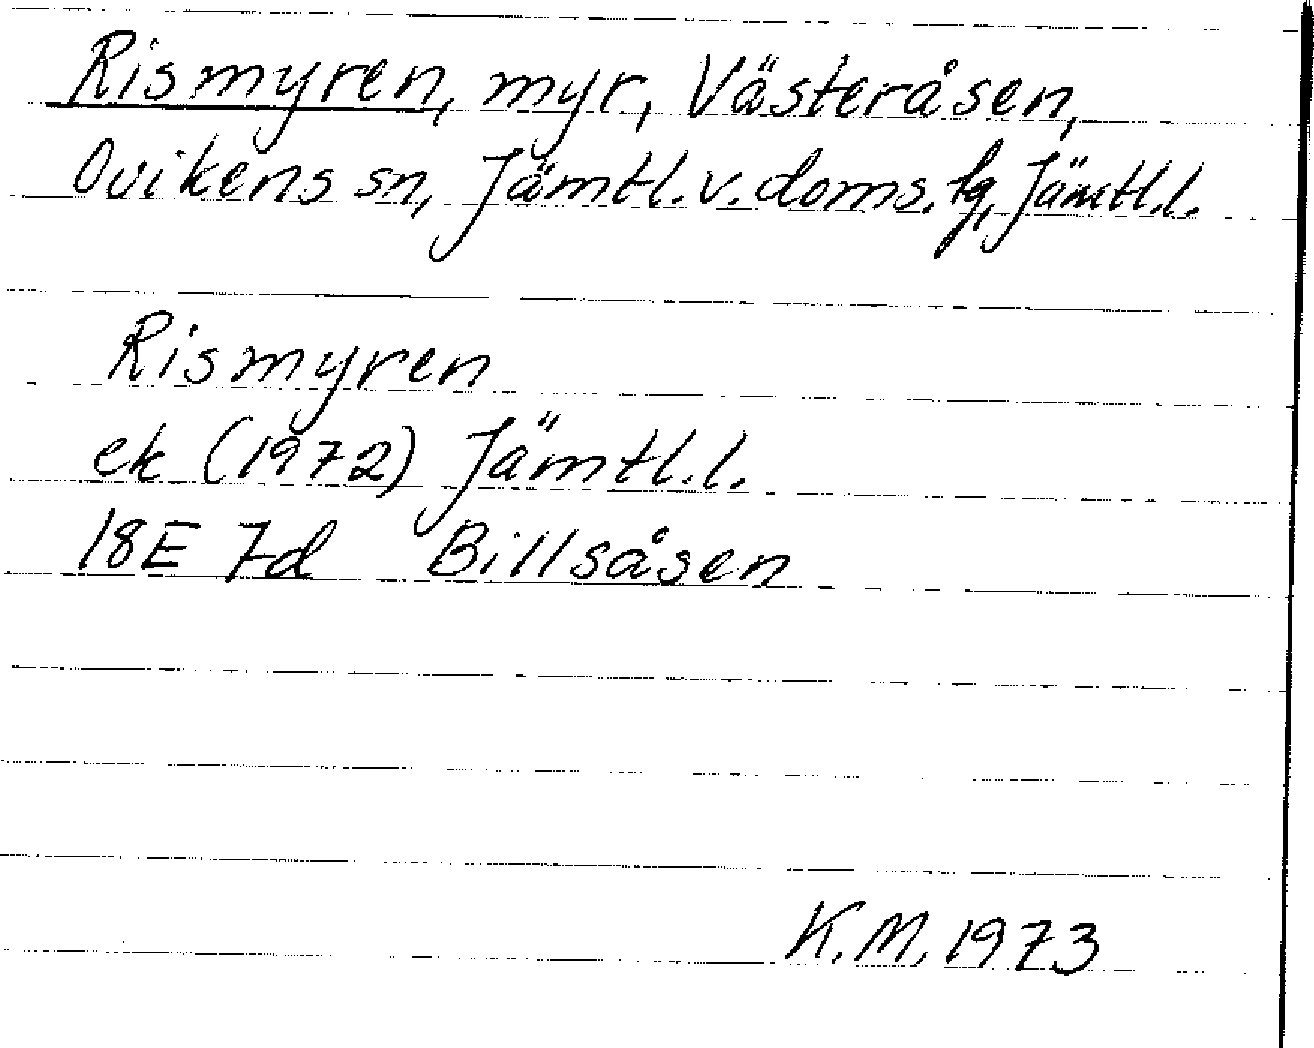 Rismyren, myr, Västeråsen,
Ovikens sn, Jämtl.v.doms.fg, Jämtl.l.
Rismyren
ek (1972) Jämtl.l.
18E 7d Billsåsen
K.M. 1973